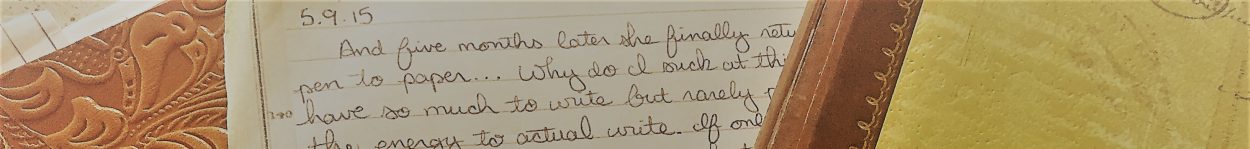 5.9.15
And five months later she finally retu
pen to paper... Why do I suck at thi
have so much to write but rarely
the energy to actual write. If onl